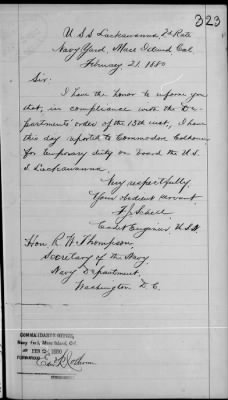 323
U.S.S. Lackawanna, 2d Rate
Navy Yard, Mare Island, Cal.
February 21. 1880
Sir:
I have the honor to inform you
that, in compliance with the De-
partments order of the 13th inst, I have
this day reported to Commodore Colhoun
for temporary duty on board the U.S.
S. Lackawanna.
Very respectfully,
Your obedient servant
Cadet Engineer, U.S.N.
Hon R. W. Thompson,
Secretary of the Navy
Navy Department,
Washington D.C.
COMMANDANT'S OFFICE,
Navy Yard, Mare Island, Cal.
FEB 21 1880
FORWARDED